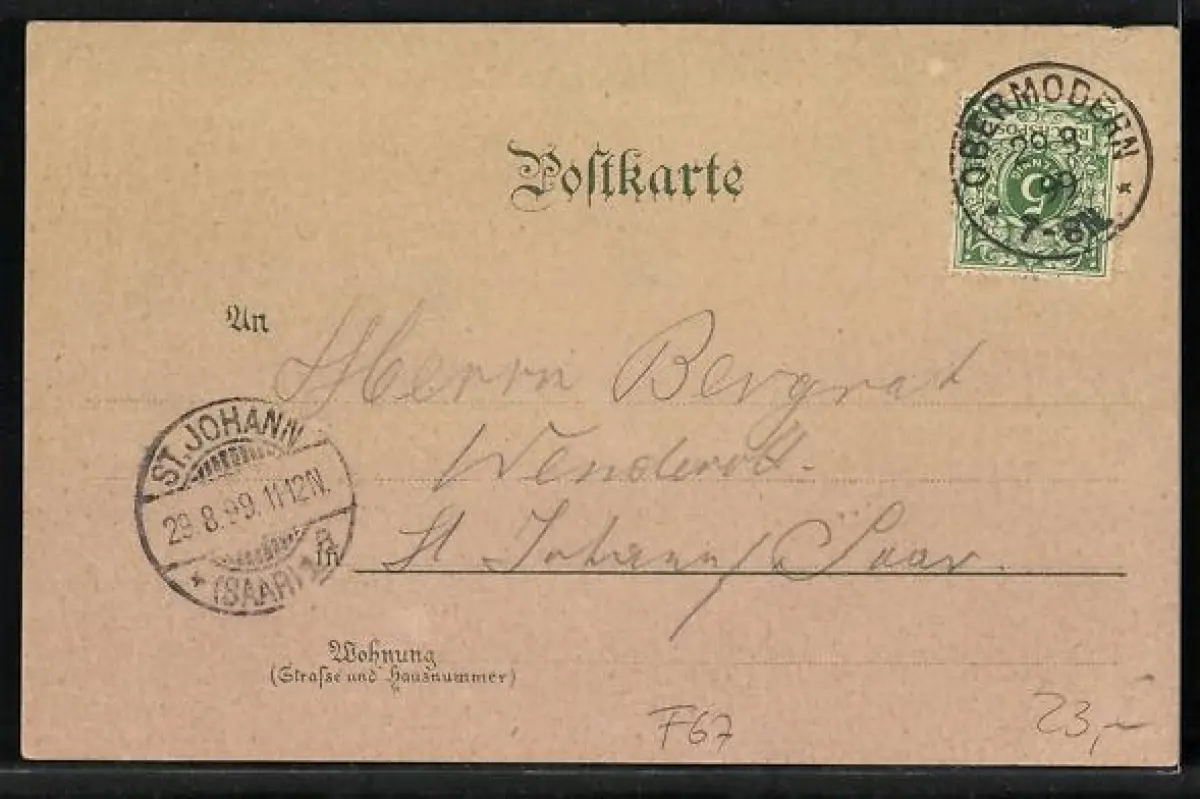 Postkarte
OBERMODERN
29 8
99
7-8N.
REICHSPOST
5
An
Herrn Bergrat
Wenderoth.
ST. JOHANN
29.8.99.11-12N.
* (SAAR) 1 a
in St Johann/Saar.
Wohnung
(Strasse und Hausnummer)
F67
23,-